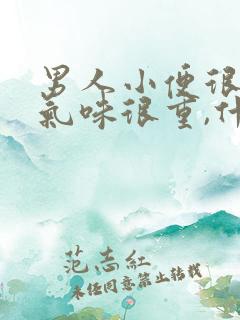 男人小便很
氣味很重,什
范志红
未经同意禁止转载